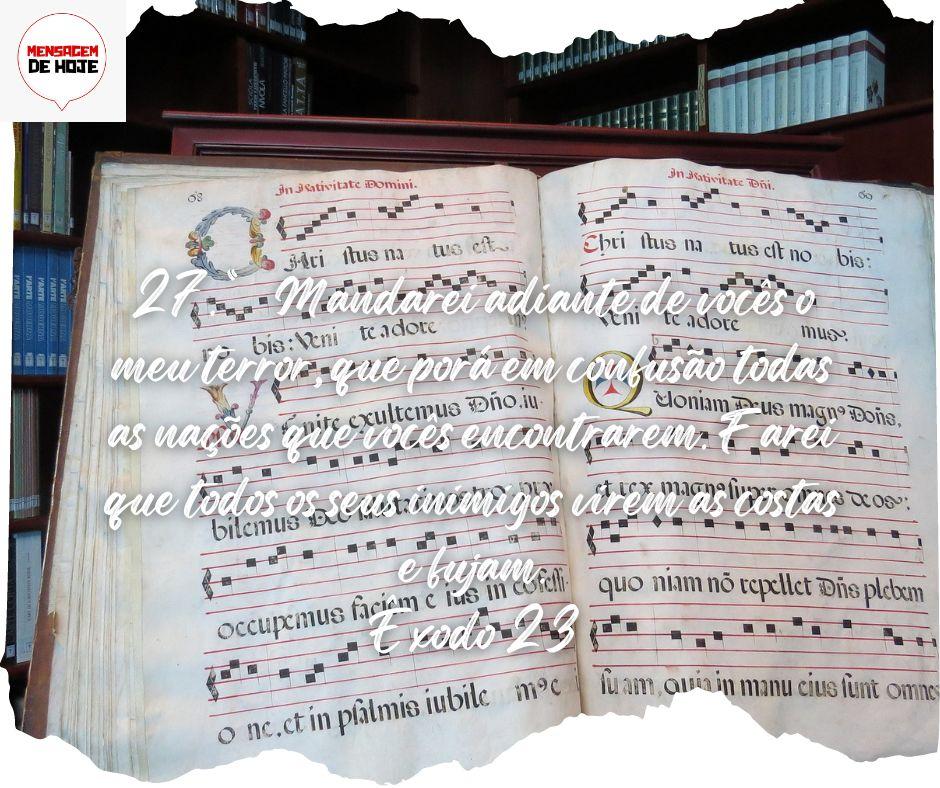 MENSAGEM
DE HOJE
In Nativitate Domini.
In Nativitate Dñi.
68
69
Chri stus na tus est
Chri stus na tus est no bis:
bis: Veni te adore
Veni te adore mus
Venite exultemus Dño, iu-
Quoniam Deus magnº Do͞ns,
bilemus Deo
et rex magnº super de os:
occupemus faciem e ius in cofessi-
quo niam nõ repellet Dñs plebem
o ne, et in psalmis iubile mº e
suam, quia in manu eius sunt omnes
27.“ Mandarei adiante de vocês o
meu terror, que porá em confusão todas
as nações que vocês encontrarem. Farei
que todos os seus inimigos virem as costas
e fujam.
Êxodo 23